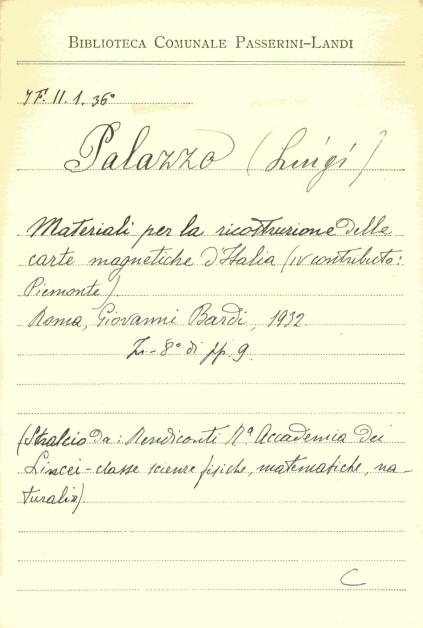 BIBLIOTECA COMUNALE PASSERINI-LANDI
7F. II. 1. 36°
Palazzo (Luigi)
Materiali per la ricostruzione delle
carte magnetiche d'Italia (IV contributo:
Piemonte)
Roma, Giovanni Bardi, 1932
In-8° di pp. 9.
(Stralcio da: Rendiconti Rª Accademia dei
Lincei - classe scienze fisiche, matematiche, na-
turali»)
C